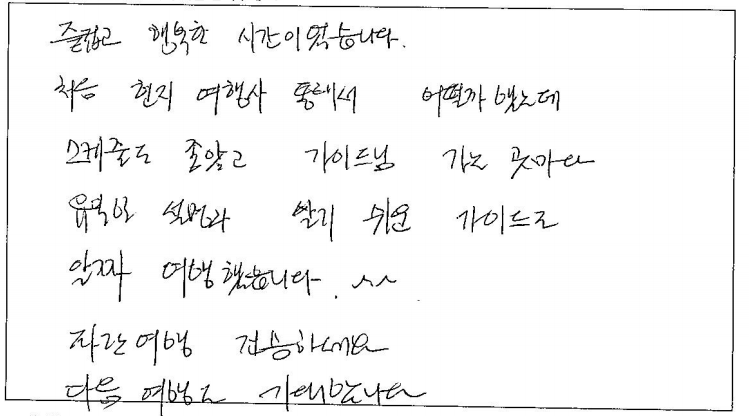 즐겁고 행복한 시간이었습니다.
처음 현지 여행사 통해서 어떨까 했는데
스케줄도 좋았고 가이드님 가는 곳마다
유익한 설명과 알기 쉬운 가이드로
알짜 여행했습니다. ^^
여행 건승하세요
다음 여행도 기대합니다